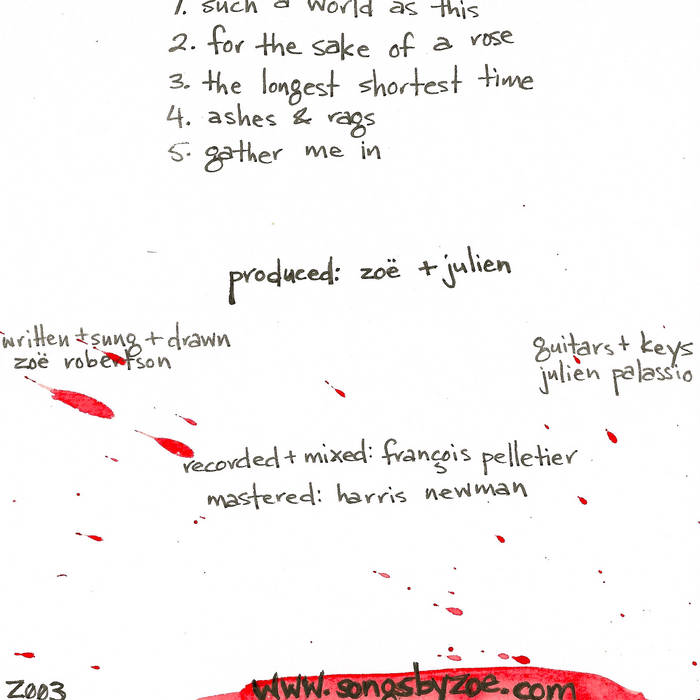 1. such a world as this
2. for the sake of a rose
3. the longest shortest time
4. ashes & rags
5. gather me in
produced: zoë + julien
written + sung + drawn
zoë robertson
guitars + keys
julien palassio
recorded + mixed: françois pelletier
mastered: harris newman
2003
www.songsbyzoe.com